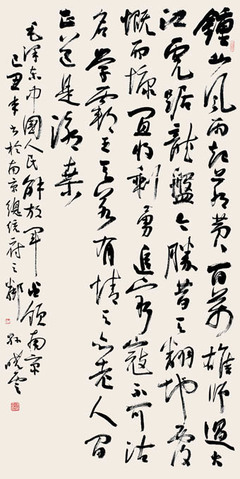 鐘山風雨起蒼黄百萬雄師過大
江虎踞龍盤今勝昔天翻地覆
慨而慷宜將剩勇追窮寇不可沽
名學霸王天若有情天亦老人間
正道是滄桑
毛澤東中國人民解放軍占領南京
己丑書於南京總統府之鄰 孫曉雲